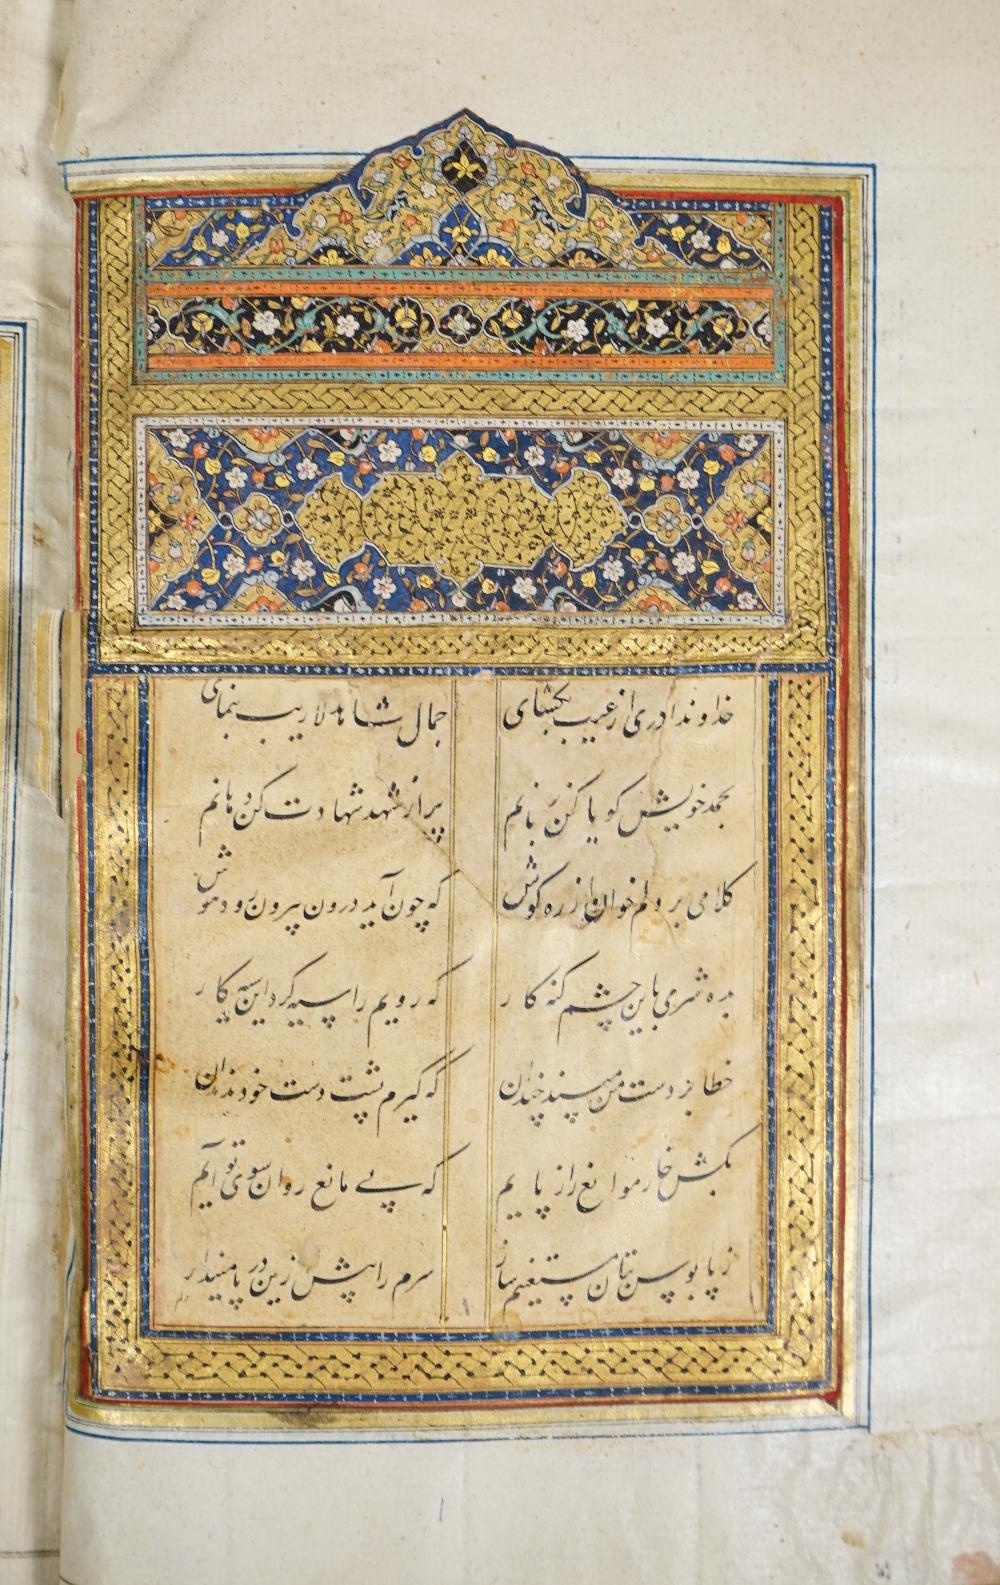 خداوندا دری از غیب بکشای جمال شاهد لاریب بنمای
بحمد خویش کویا کن زبانم پر از شهد شهادت کن دهانم
کلامی بر دلم خوان از ره کوش که چون آید درون بیرون رود هوش
بده شرمی باین چشم کنه کار که رویم را سیه کرد این سیه کار
خطا بر دست من مپسند چندان که کیرم پشت دست خود بدندان
بکش خار موانع را ز پایم که بے مانع روان سوی تو آیم
ز پابوس بتان مستغنیم ساز سرم را پیش ازین در پا مینداز